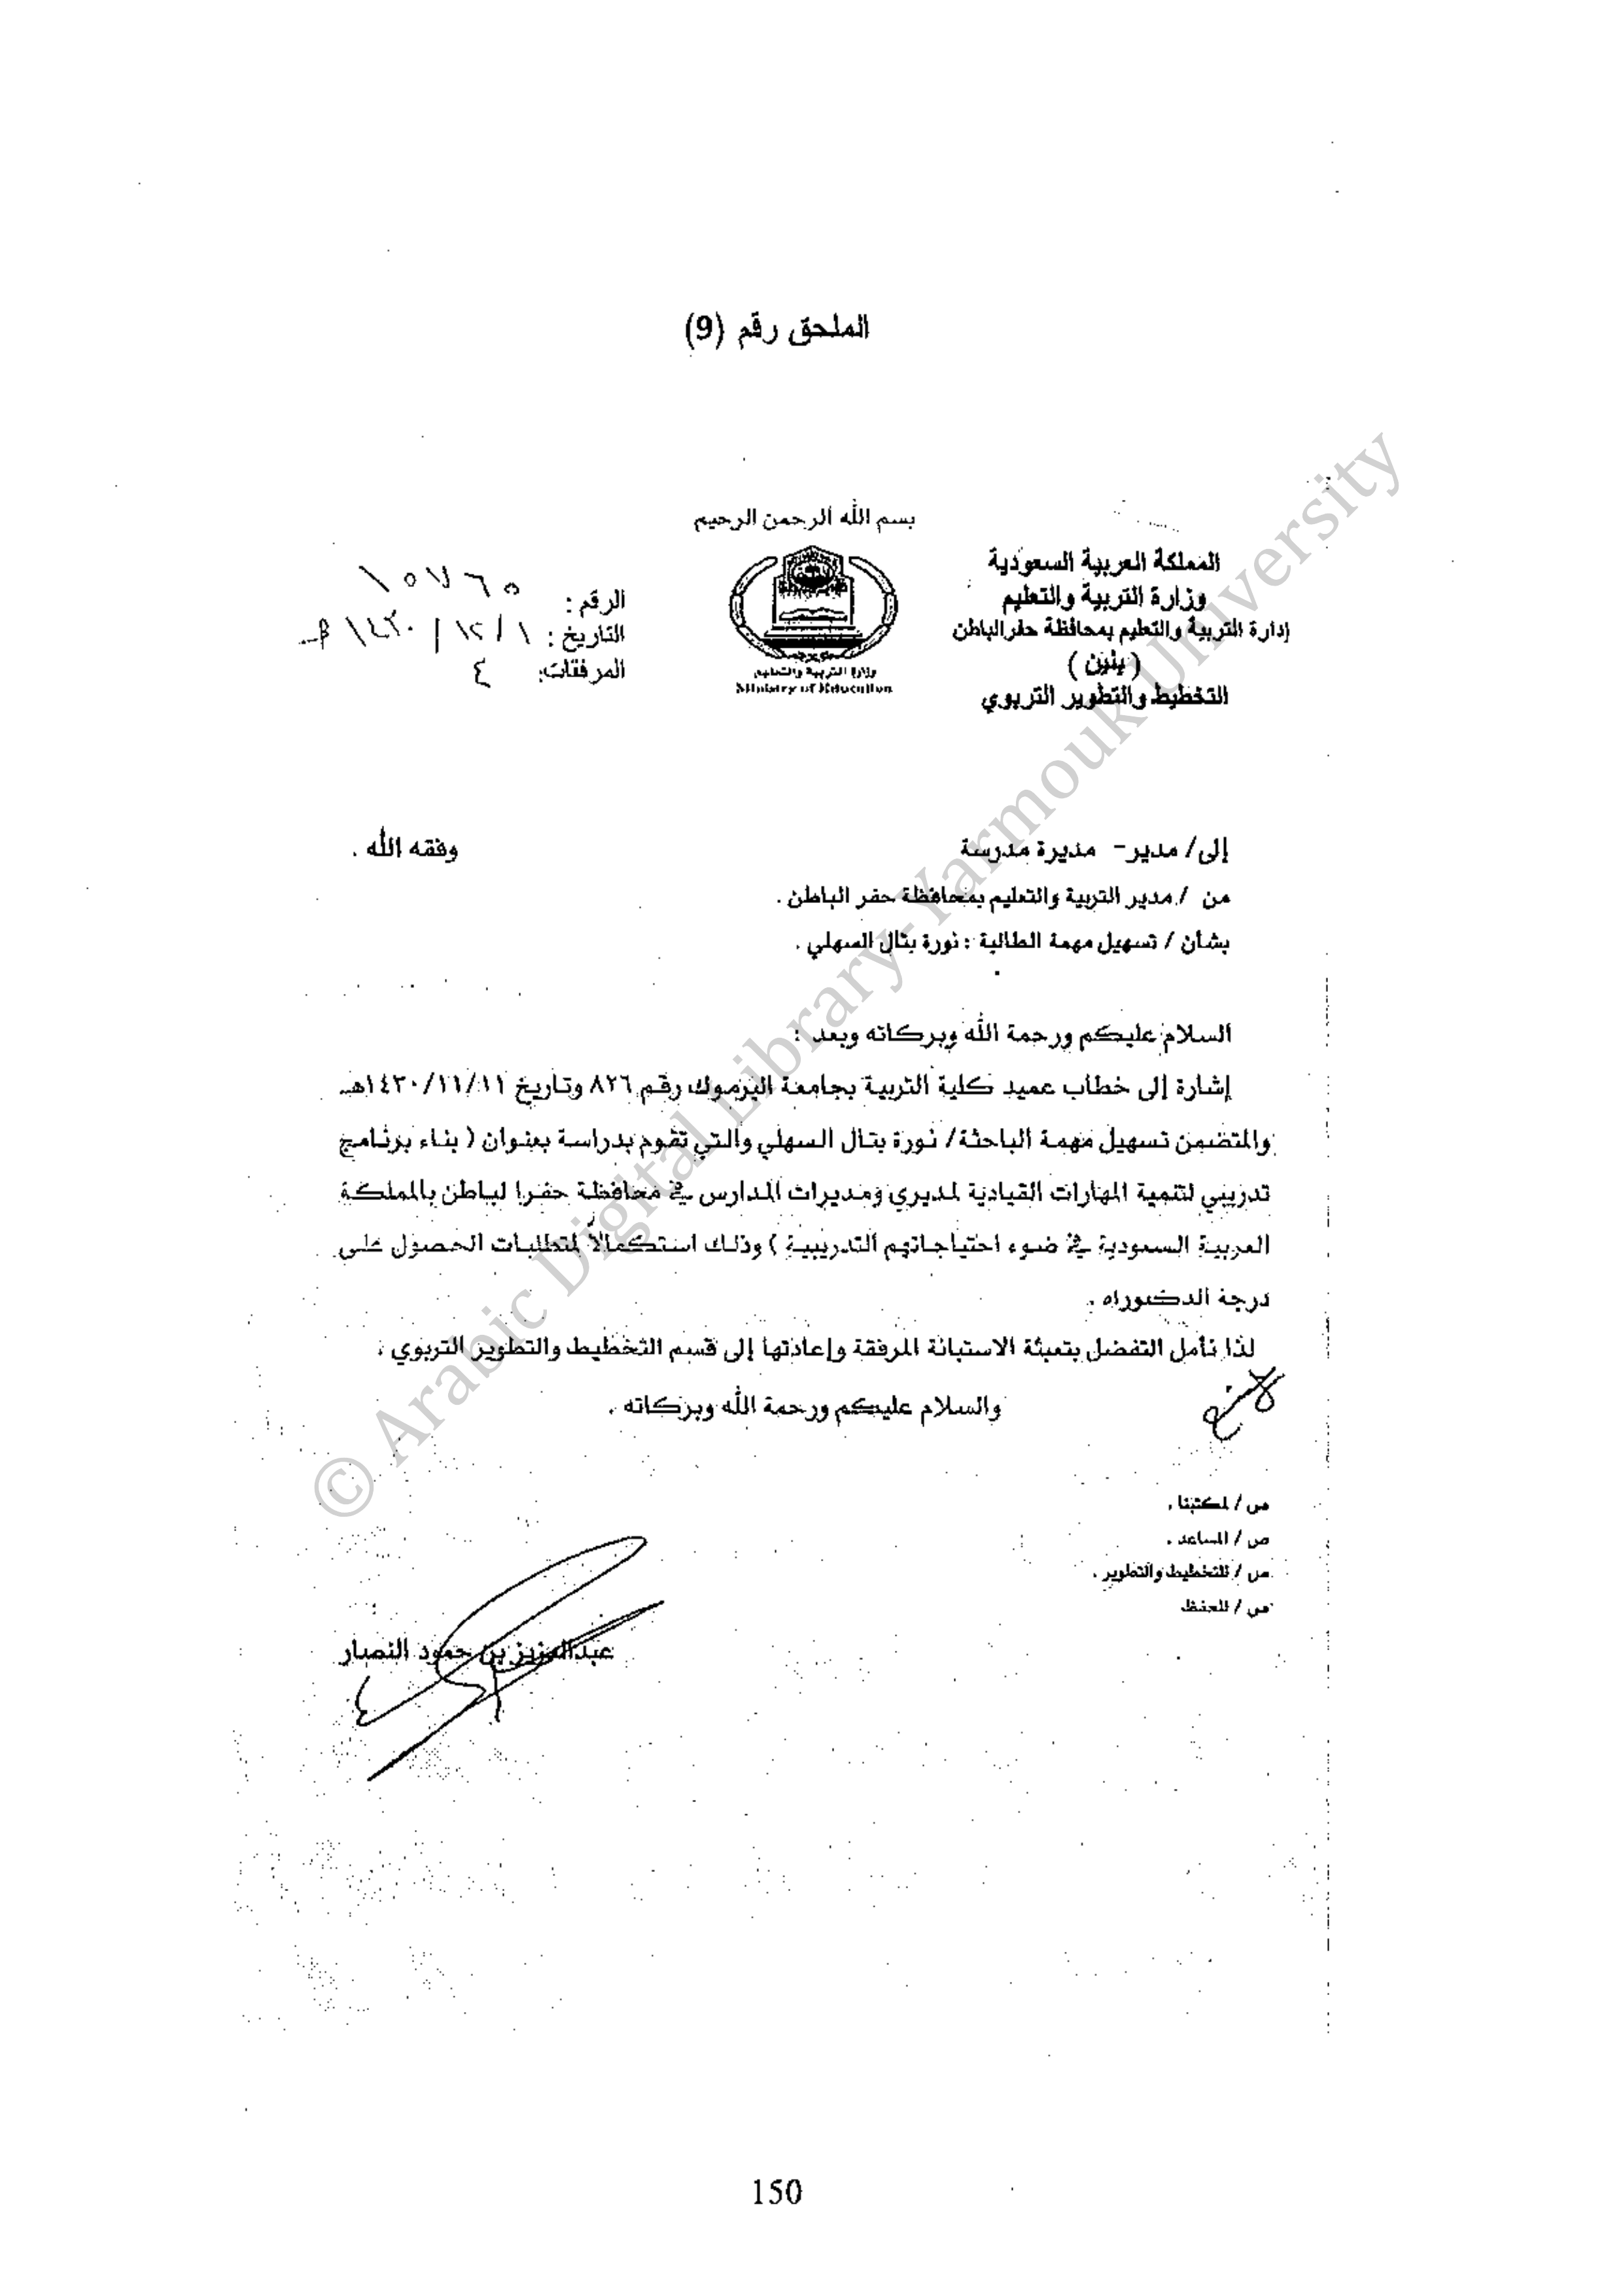 الملحق رقم (9)
بسم الله الرحمن الرحيم
المملكة العربية السعودية
وزارة التربية والتعليم
إدارة التربية والتعليم بمحافظة حفر الباطن
( بنين )
التخطيط والتطوير التربوي
وزارة التربية والتعليم
Ministry of Education
الرقم : ١٠٧٦٥
التاريخ : ١ / ١٢ / ١٤٣٠ هـ
المرفقات: ٤
إلى/ مدير- مديرة مدرسة وفقه الله .
من / مدير التربية والتعليم بمحافظة حفر الباطن .
بشأن / تسهيل مهمة الطالبة : نورة بتال السهلي .
السلام عليكم ورحمة الله وبركاته وبعد :
إشارة إلى خطاب عميد كلية التربية بجامعة اليرموك رقم ٨٢٦ وتاريخ ١٤٣٠/١١/١١هـ
والمتضمن تسهيل مهمة الباحثة/ نورة بتال السهلي والتي تقوم بدراسة بعنوان ( بناء برنامج
تدريبي لتنمية المهارات القيادية لمديري ومديرات المدارس في محافظة حفرا لباطن بالمملكة
العربية السعودية في ضوء احتياجاتهم التدريبية ) وذلك استكمالاً لمتطلبات الحصول على
درجة الدكتوراه .
لذا نأمل التفضل بتعبئة الاستبانة المرفقة وإعادتها إلى قسم التخطيط والتطوير التربوي .
والسلام عليكم ورحمة الله وبركاته .
ص / لمكتبنا .
ص / المساعد .
ص / للتخطيط والتطوير .
ص / للحفظ
عبدالعزيز بن حمود النصار
© Arabic Digital Library-Yarmouk University
150